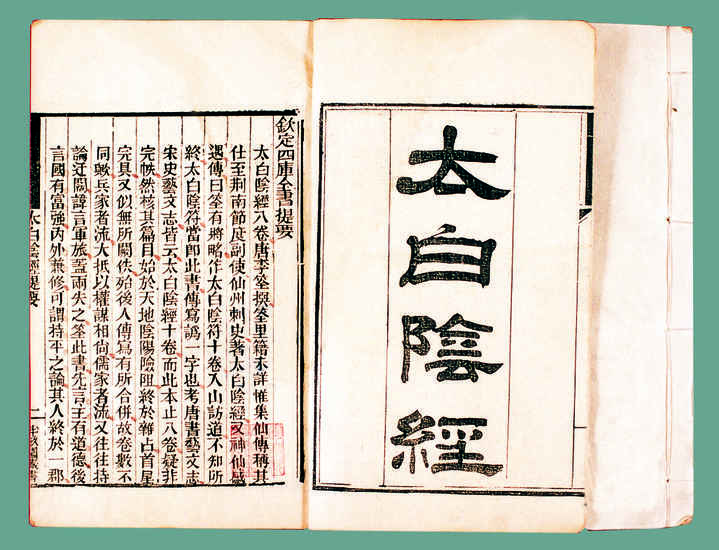 太白陰經
欽定四庫全書提要
太白陰經八卷唐李筌撰筌里籍未詳惟集仙傳稱其
仕至荆南節度副使仙州刺史著太白陰經又神仙感
遇傳曰筌有將略作太白陰符十卷入山訪道不知所
終太白陰符當卽此書傳寫譌一字也考唐書藝文志
宋史藝文志皆云太白陰經十卷而此本止八卷疑非
完帙然核其篇目始於天地陰陽險阻終於雜占首尾
完具又似無所闕佚殆後人傳寫有所合併故卷數不
同歟兵家者流大抵以權謀相尚儒家者流又往往持
論迂闊諱言軍旅蓋兩失之筌此書先言主有道德後
言國有富強內外兼修可謂持平之論其人終於一郡
太白陰經提要
二